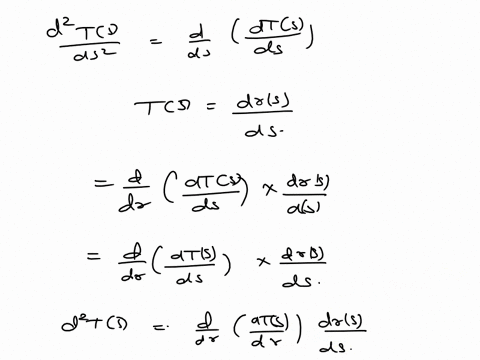 d²T(s)/ds² = d/ds (dT(s)/ds)
T(s) = dr(s)/ds.
= d/dr (dT(s)/ds) × dr(s)/d(s)
= d/dr (dT(s)/ds) × dr(s)/ds.
d²T(s) =. d/dr (dT(s)/dr) dr(s)/ds.